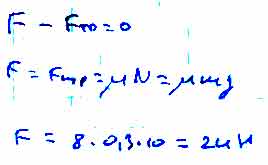 F − Fтр = 0
F = Fтр = μN = μmg
F = 8 · 0,3 · 10 = 24 Н